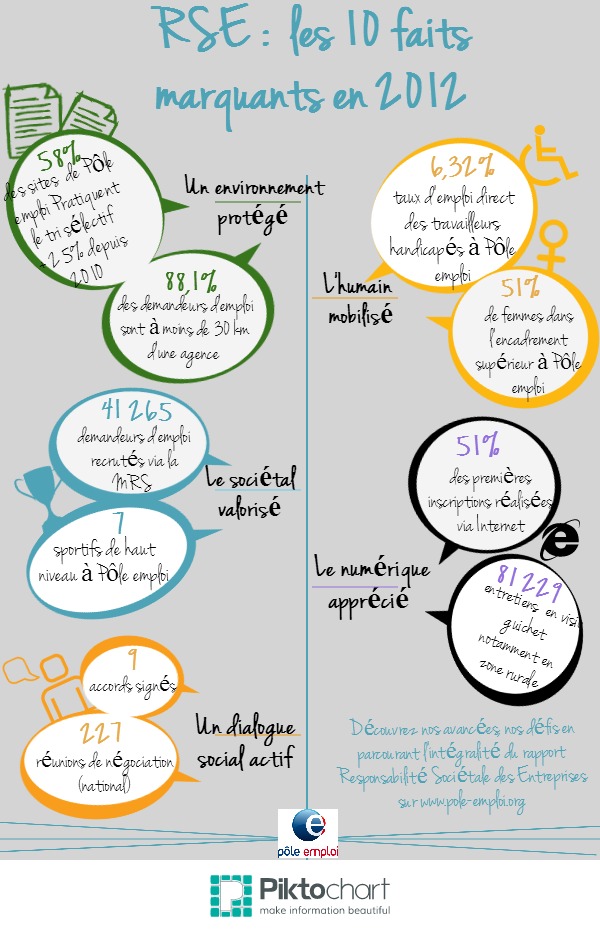 RSE : les 10 faits
marquants en 2012
58%
des sites de Pôle
emploi Pratiquent
le tri sélectif
+ 25% depuis
2010
Un environnement
protégé
88,1%
des demandeurs d'emploi
sont à moins de 30 km
d'une agence
6,32%
taux d'emploi direct
des travailleurs
handicapés à Pôle
emploi
L'humain
mobilisé
51%
de femmes dans
l'encadrement
supérieur à Pôle
emploi
41 265
demandeurs d'emploi
recrutés via la
MRS
Le sociétal
valorisé
7
sportifs de haut
niveau à Pôle emploi
51%
des premières
inscriptions réalisées
via Internet
Le numérique
apprécié
81 229
entretiens en visio
guichet
notamment en
zone rurale
9
accords signés
Un dialogue
social actif
227
réunions de négociation
(national)
Découvrez nos avancées, nos défis en
parcourant l'intégralité du rapport
Responsabilité Sociétale des Entreprises
sur www.pole-emploi.org
pôle emploi
Piktochart
make information beautiful